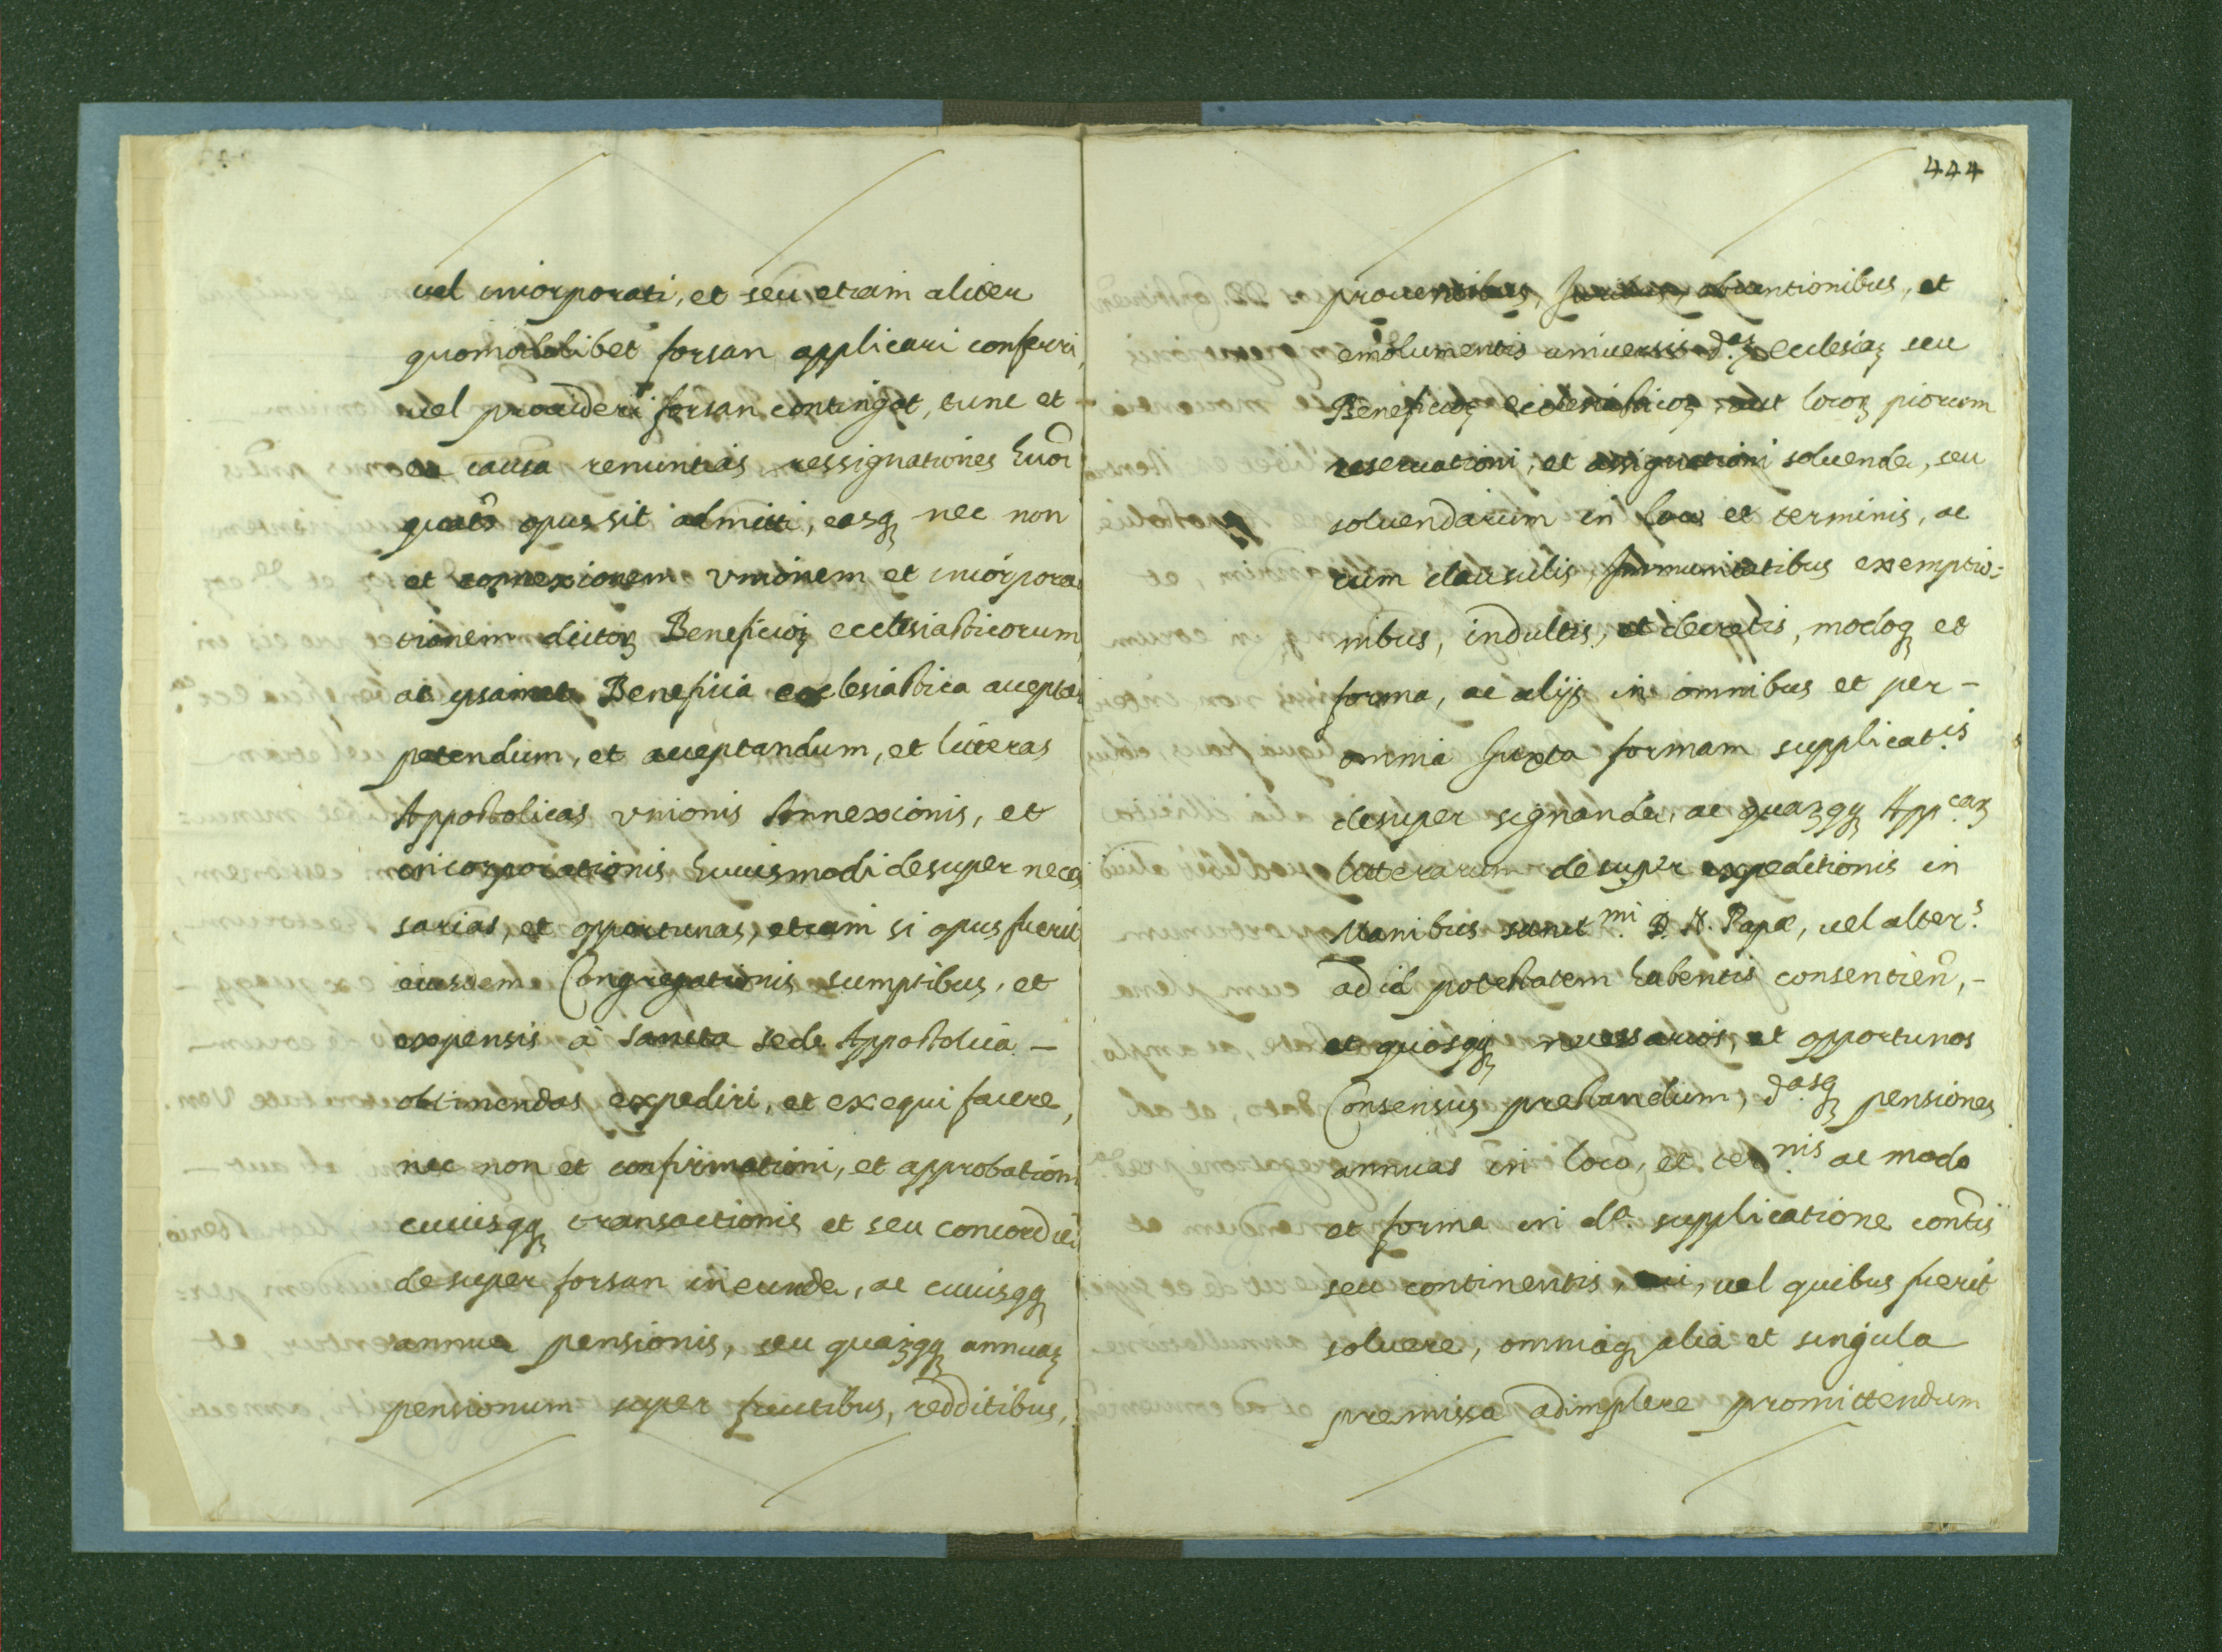 vel incorporati, et seu etiam aliter
quomodolibet forsan applicari conferri,
vel provideri forsan contingat, tunc et
ea causa renuntias ressignationes huōi
quatẽs opus sit admitti, easq nec non
et connexionem vnionem et incorpora
tionem dictoꝝ Beneficioꝝ ecclesiasticorum,
ac ipsamet Beneficia ecclesiastica accepta
petendum, et acceptandum, et literas
Appostolicas vnionis Annexionis, et
incorporationis huiusmodi desuper neces
sarias, et opportunas, etiam si opus fuerit
eiusdem Congregationis sumptibus, et
expensis à Sancta sede Appostolica —
obtinendas expediri, et exequi facere,
nec non et confirmationi, et approbationi
cuiusqq transactionis et seu concordiæ
desuper forsan ineunda, ac cuiusqq
annua pensionis, seu quaꝝqq annuaꝝ
pensionum super fructibus, redditibus,
444
proventibus, Juribus, obventionibus, et
emolumentis universis d.aꝝ ecclesiaꝝ seu
Beneficioꝝ ecclesiasticoꝝ, aut locoꝝ piorum
reservationi, et assignationi solvenda, seu
solvendarum in loco et terminis, ac
cum clausulis, Immunitatibus exemptio=
nibus, indultis, et decretis, modoq et
forma, ac alijs in omnibus et per –
omnia Juxta formam supplicat.is
desuper signanda, ac quaꝝqq App.caꝝ
litterarum desuper expeditionis in
Manibus sanct.mi D. N. Papæ, vel alter.s
ad id potestatem habentis consentien̄, –
et quosqq necessarios, et opportunos
Consensus prestandum, d.asq pensiones
annuas in loco, et ter.nis ac modo
et forma in d.a supplicatione contis
seu continentis, cui, vel quibus fuerit
solvere, omniaq alia et singula
premissa adimplere promittendum